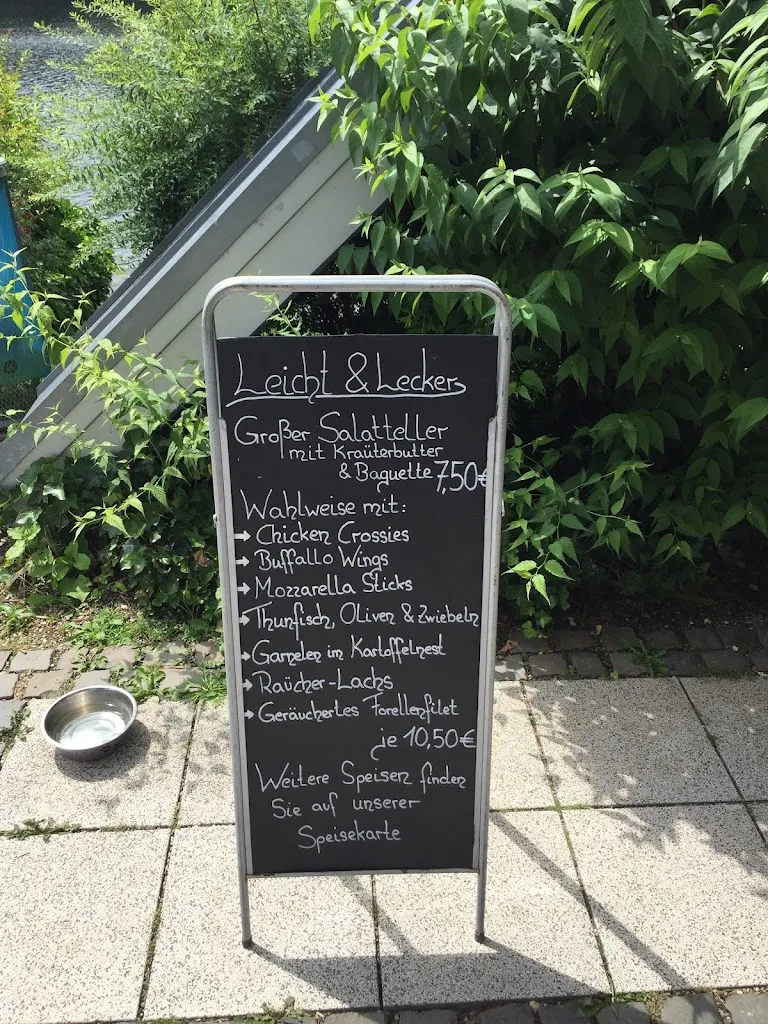 Leicht & Lecker
Großer Salatteller
mit Kräuterbutter
& Baguette 7,50€
Wahlweise mit:
→ Chicken Crossies
→ Buffallo Wings
→ Mozzarella Sticks
→ Thunfisch, Oliven & Zwiebeln
→ Garnelen im Kartoffelnest
→ Räucher-Lachs
→ Geräuchertes Forellenfilet
je 10,50€
Weitere Speisen finden
Sie auf unserer
Speisekarte